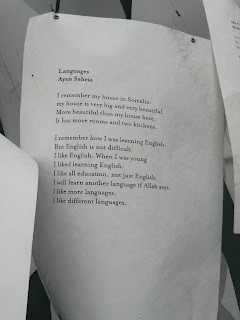 Languages
Ayan Sabrie
I remember my house in Somalia:
my house is very big and very beautiful.
More beautiful than my house here.
It has more rooms and two kitchens.
I remember how I was learning English.
But English is not difficult.
I like English. When I was young
I liked learning English.
I like all education, not just English.
I will learn another language if Allah says.
I like more languages.
I like different languages.